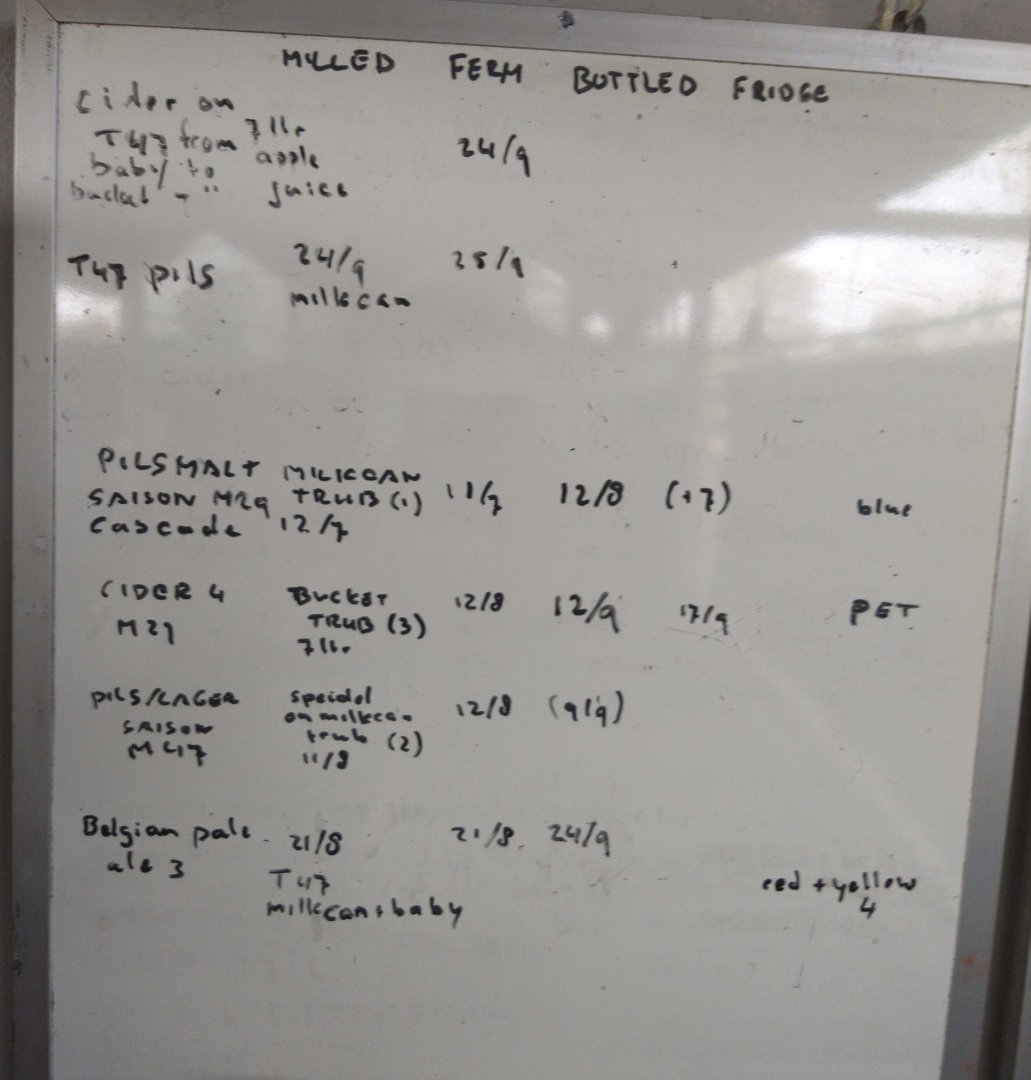 MILLED FERM BOTTLED FRIDGE
cider on
T47 from 7 ltr
baby to apple 24/9
bucket - " juice
T47 pils 24/9 25/9
milkcan
PILSMALT MILKCAN
SAISON M29 TRUB (1) 11/7 12/8 (+7) blue
Cascade 12/7
CIDER 4 BUCKET 12/8 12/9 17/9 PET
M29 TRUB (3)
7 ltr
PILS/LAGER speidel 12/8 (9/9)
SAISON on milkcan
M47 trub (2)
11/8
Belgian pale - 21/8 21/8. 24/9
ale 3 T47 red + yellow
milkcan + baby 4